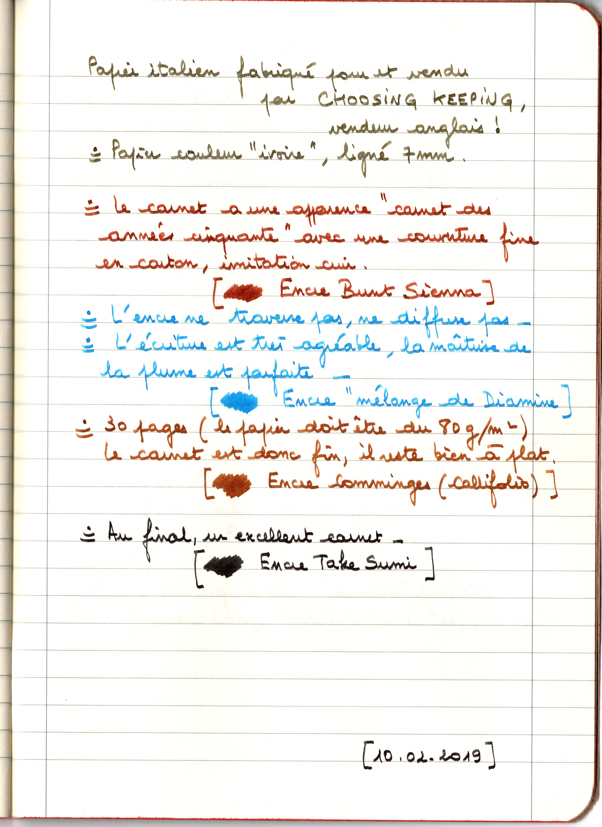 Papier italien fabriqué pour et vendu
par CHOOSING KEEPING,
vendeur anglais !
∸ Papier couleur "ivoire", ligné 7mm.
∸ Le carnet a une apparence "carnet des
années cinquante" avec une couverture fine
en carton, imitation cuir.
[ Encre Bunt Sienna ]
∸ L'encre ne traverse pas, ne diffuse pas _
∸ L'écriture est très agréable, la maîtrise de
la plume est parfaite _
[ Encre "mélange de Diamine ]
∸ 30 pages ( le papier doit être du 80 g/m²)
Le carnet est donc fin, il reste bien à plat.
[ Encre Comminges (Callifolio) ]
∸ Au final, un excellent carnet _
[ Encre Take Sumi ]
[10.02.2019]